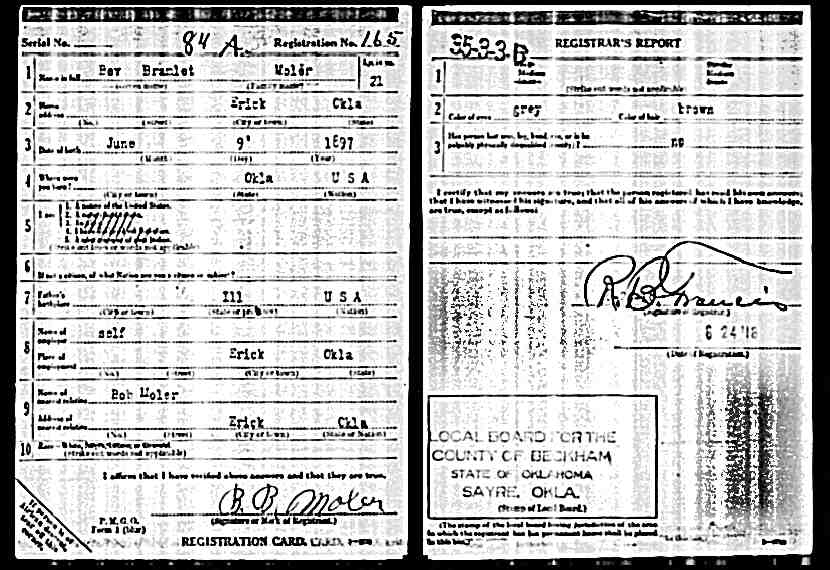 Serial No. 84 A. Registration No. 165
1 Name in full Bev Bramlet Moler Age, in yrs. 21
(Given name) (Family name)
2 Home address Erick Okla
(No.) (Street) (City or town) (State)
3 Date of birth June 9 1897
(Month) (Day) (Year)
4 Where were you born? Okla U S A
(City or town) (State) (Nation)
5 I am 1. A native of the United States.
(Strike out lines or words not applicable)
6 If not a citizen, of what Nation are you a citizen or subject?
7 Father's birthplace Ill U S A
(City or town) (State or province) (Nation)
8 Name of employer self
Place of employment Erick Okla
(No.) (Street) (City or town) (State)
9 Name of nearest relative Bob Moler
Address of nearest relative Erick Okla
(No.) (Street) (City or town) (State or Nation)
10 Race—White,
(Strike out words not applicable)
I affirm that I have verified above answers and that they are true.
B. B. Moler
P. M. G. O.
Form 1 (blue)
(Signature or Mark of Registrant.)
REGISTRATION CARD.
35-3-3 B REGISTRAR'S REPORT
1 Medium Slender Medium
(Strike out words not applicable)
2 Color of eyes grey Color of hair brown
3 Has person lost arm, leg, hand, eye, or is he
palpably physically disqualified no
I certify that my answers are true; that the person registered has read his own answers;
that I have witnessed his signature, and that all of his answers of which I have knowledge,
are true, except as follows:
R. B. Francis
(Signature of Registrar)
6 24 '18
(Date of Registration.)
LOCAL BOARD FOR THE
COUNTY OF BECKHAM
STATE OF OKLAHOMA
SAYRE, OKLA.
(Stamp of Local Board.)
(The stamp of the local board having jurisdiction of the area
in which the registrant has his permanent home shall be placed
in this box.)